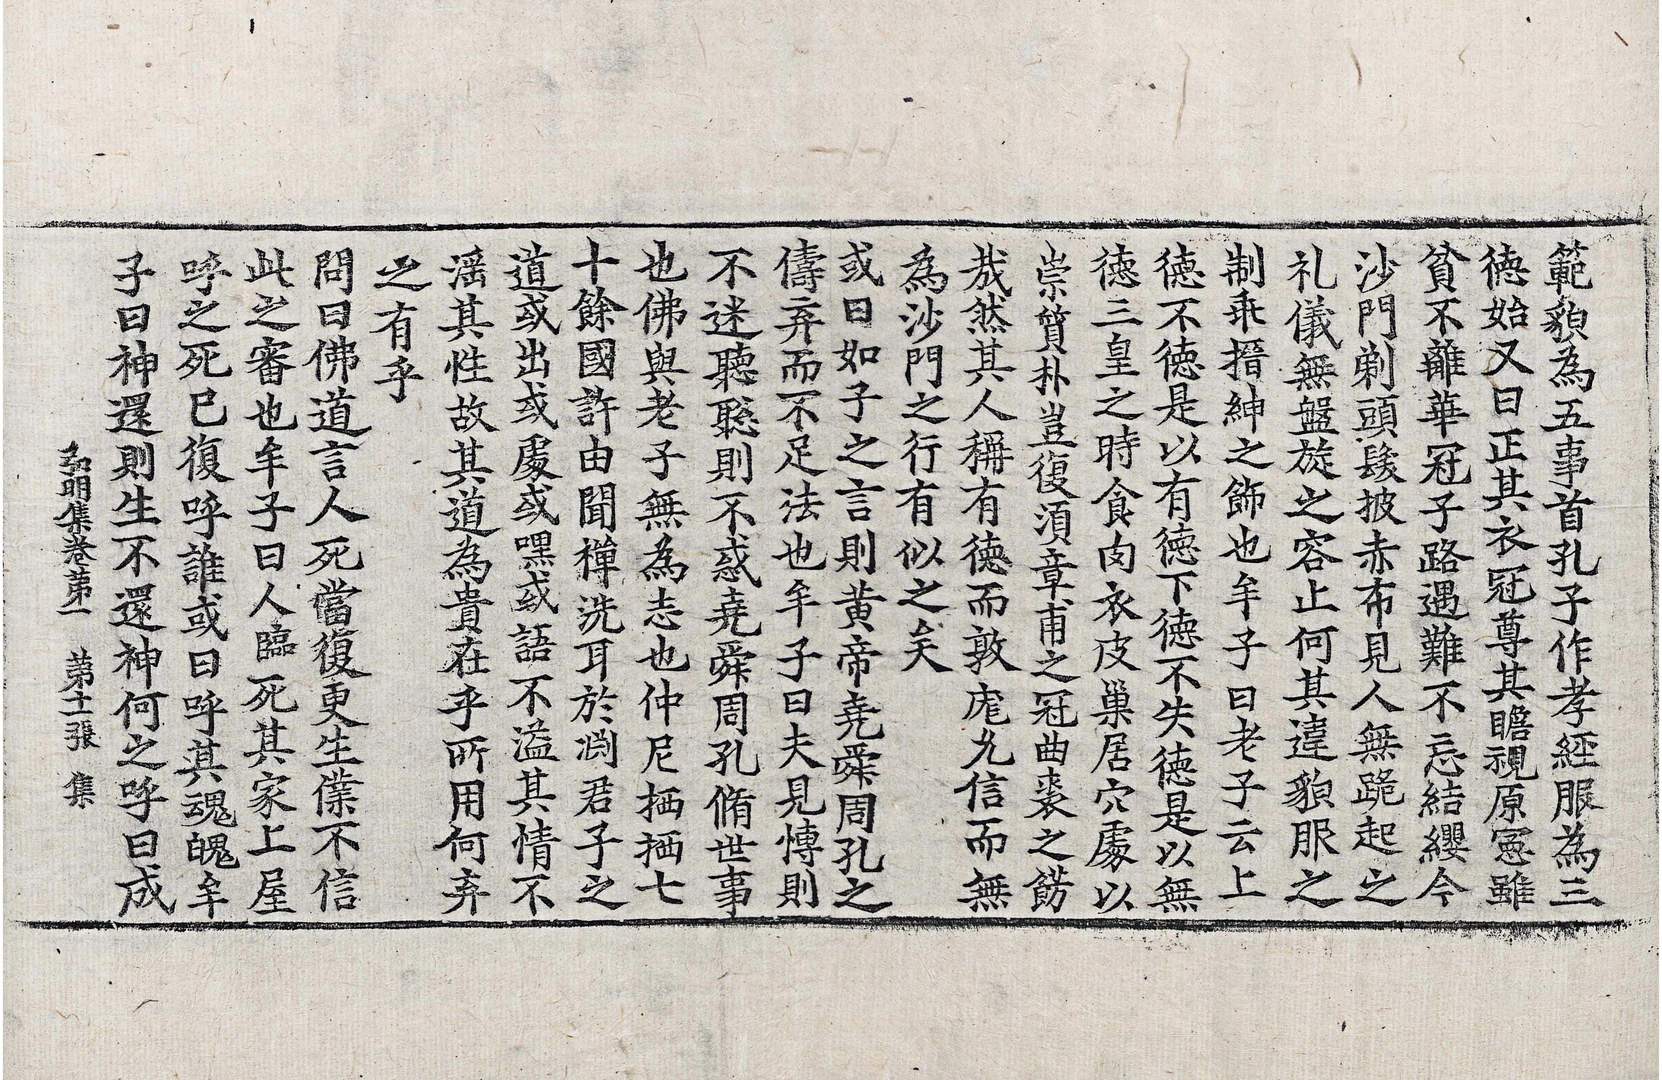 範貌為五事首孔子作孝經服為三
德始又曰正其衣冠尊其瞻視原憲雖
貧不離華冠子路遇難不忘結纓今
沙門剃頭髮披赤布見人無跪起之
礼儀無盤旋之容止何其違貌服之
制乖搢紳之飾也牟子曰老子云上
德不德是以有德下德不失德是以無
德三皇之時食肉衣皮巢居穴處以
崇質朴豈復須章甫之冠曲裘之飾
㢤然其人稱有德而敦庬允信而無
為沙門之行有似之矣
或曰如子之言則黄帝堯舜周孔之
儔弃而不足法也牟子曰夫見愽則
不迷聽聡則不惑堯舜周孔脩世事
也佛與老子無為志也仲尼栖栖七
十餘國許由聞禪洗耳於渕君子之
道或出或處或嘿或語不溢其情不
滛其性故其道為貴在乎所用何弃
之有乎
問曰佛道言人死當復更生僕不信
此之審也牟子曰人臨死其家上屋
呼之死已復呼誰或曰呼其魂魄牟
子曰神還則生不還神何之呼曰成
弘明集卷第一　第十二張　集